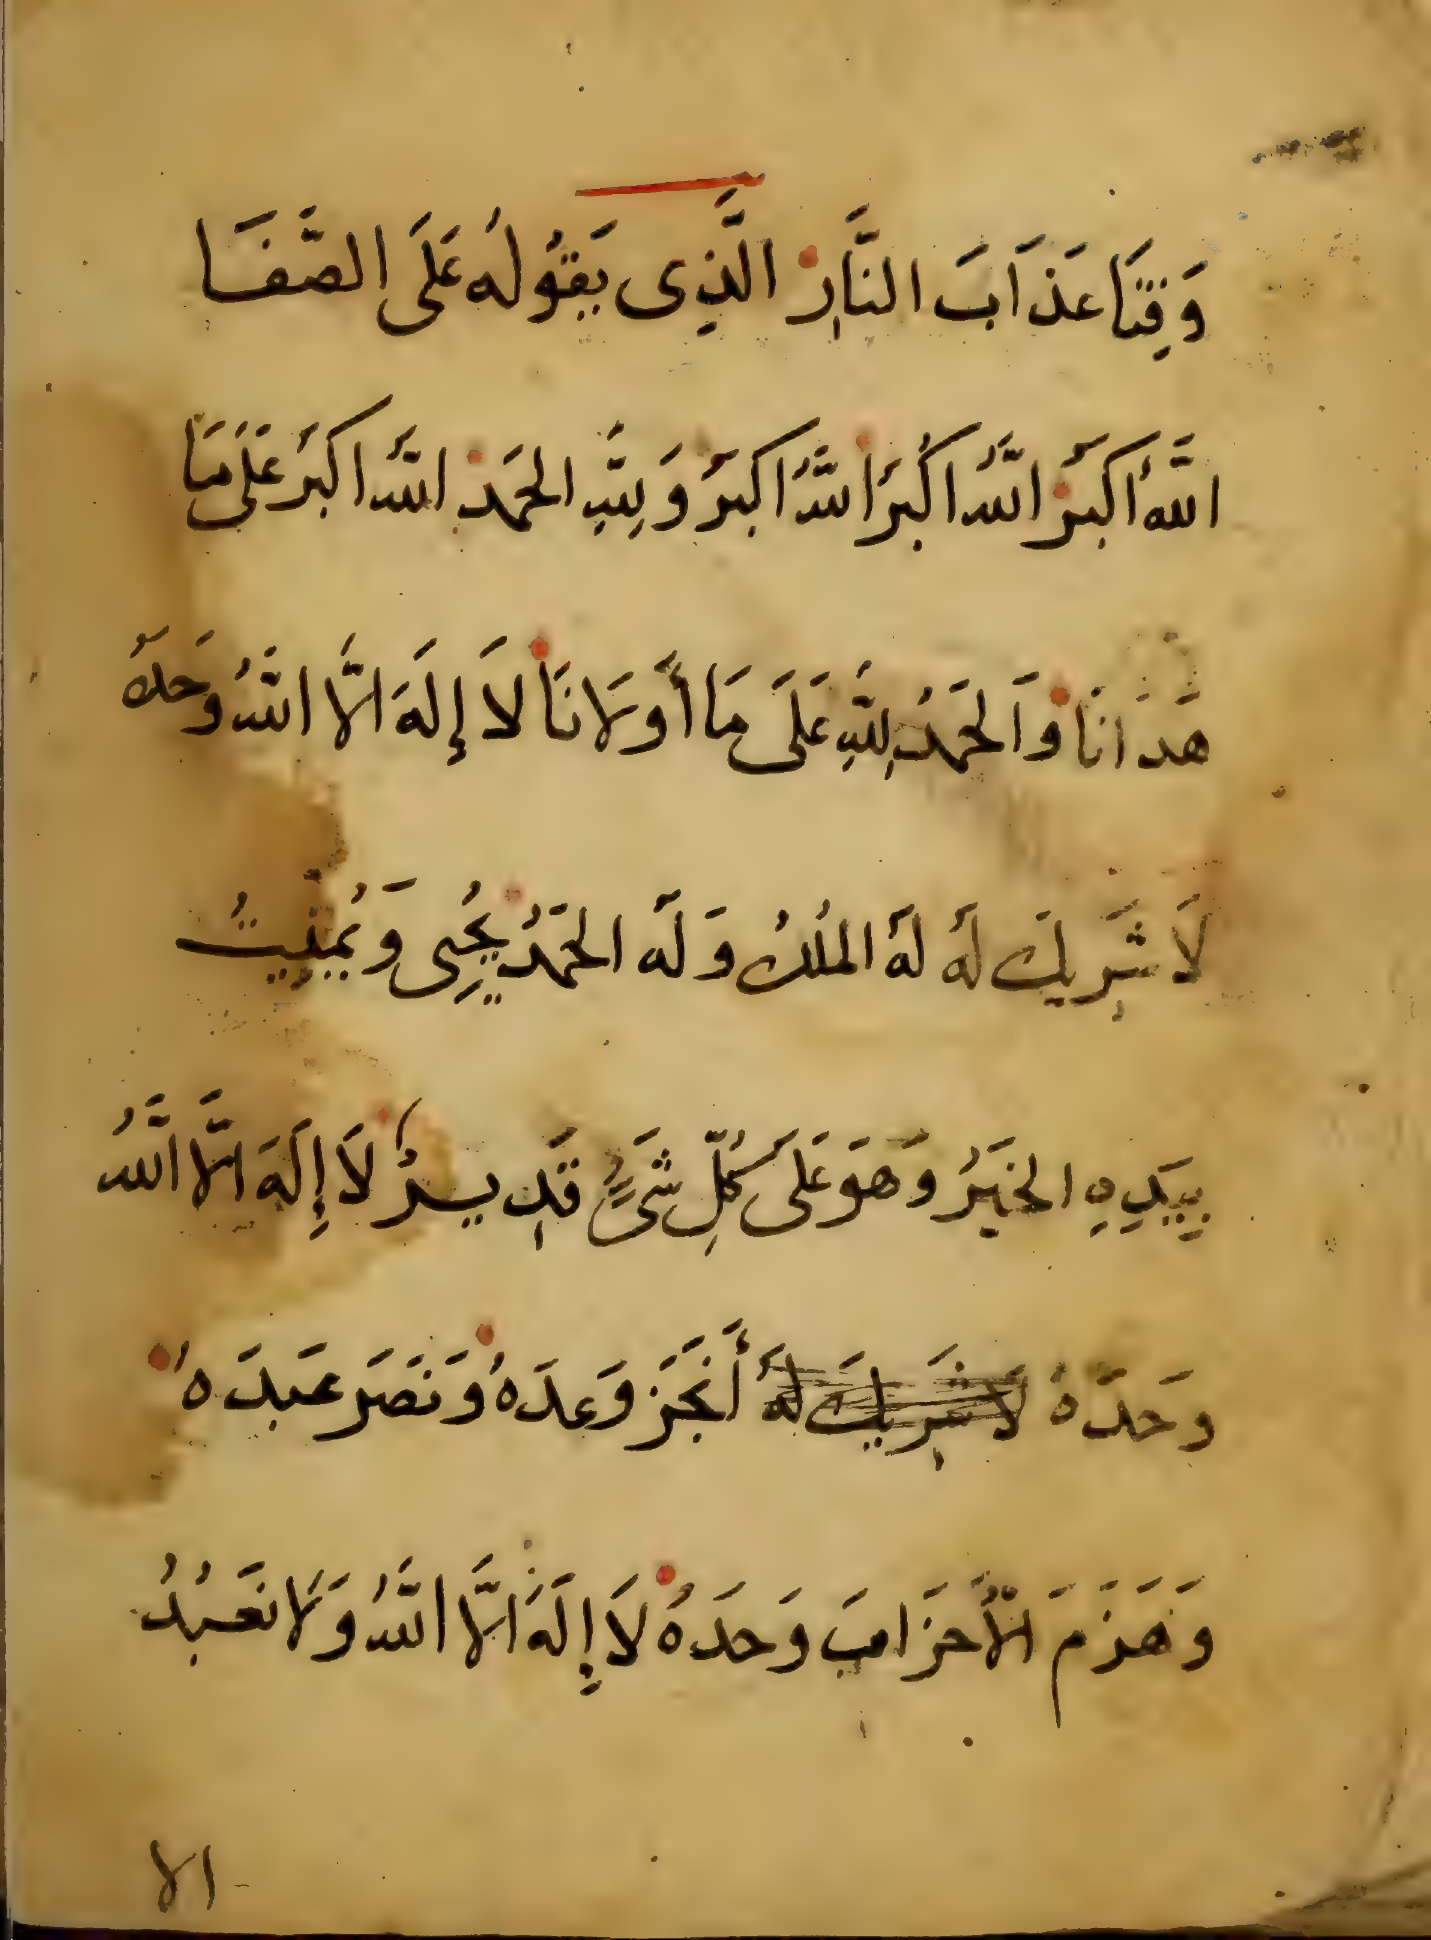 وَقِنَا عَذَابَ النَّارِ الَّذِى يَقُولُه عَلَى الصَّفَا
اللَّهُ اَكبَرُ اللَّهُ اَكبَرُ اللَّهُ اَكبَرُ وَلِلَّهِ الحَمدُ اللَّهُ اَكبَرُ عَلَى مَا
هَدَانَا وَالحَمَدُ لِلَّهِ عَلَى مَا أَولَانَا لَا إِلَهَ اِلَّا اللَّهُ وَحدَهُ
لَا شَرِيكَ لَهُ لَهُ المُلكُ وَلَه الحَمدُ يُحيِى وَيُمِيتُ
بِيَدِهِ الخَيَرُ وَهوَ عَلَى كُلِّ شَىءٍ قَدِيرُ لَا إِلَهَ اِلَّا اللَّهُ
وَحدَهُ لَا شَرِيكَ لَهُ أَنجَزَ وَعدَهُ وَنَصَرَ عَبدَهُ
وَهَزَمَ الأَحزَابَ وَحدَهُ لَا إِلَهَ اِلَّا اللَّهُ وَلَا نَعبُدُ
الا